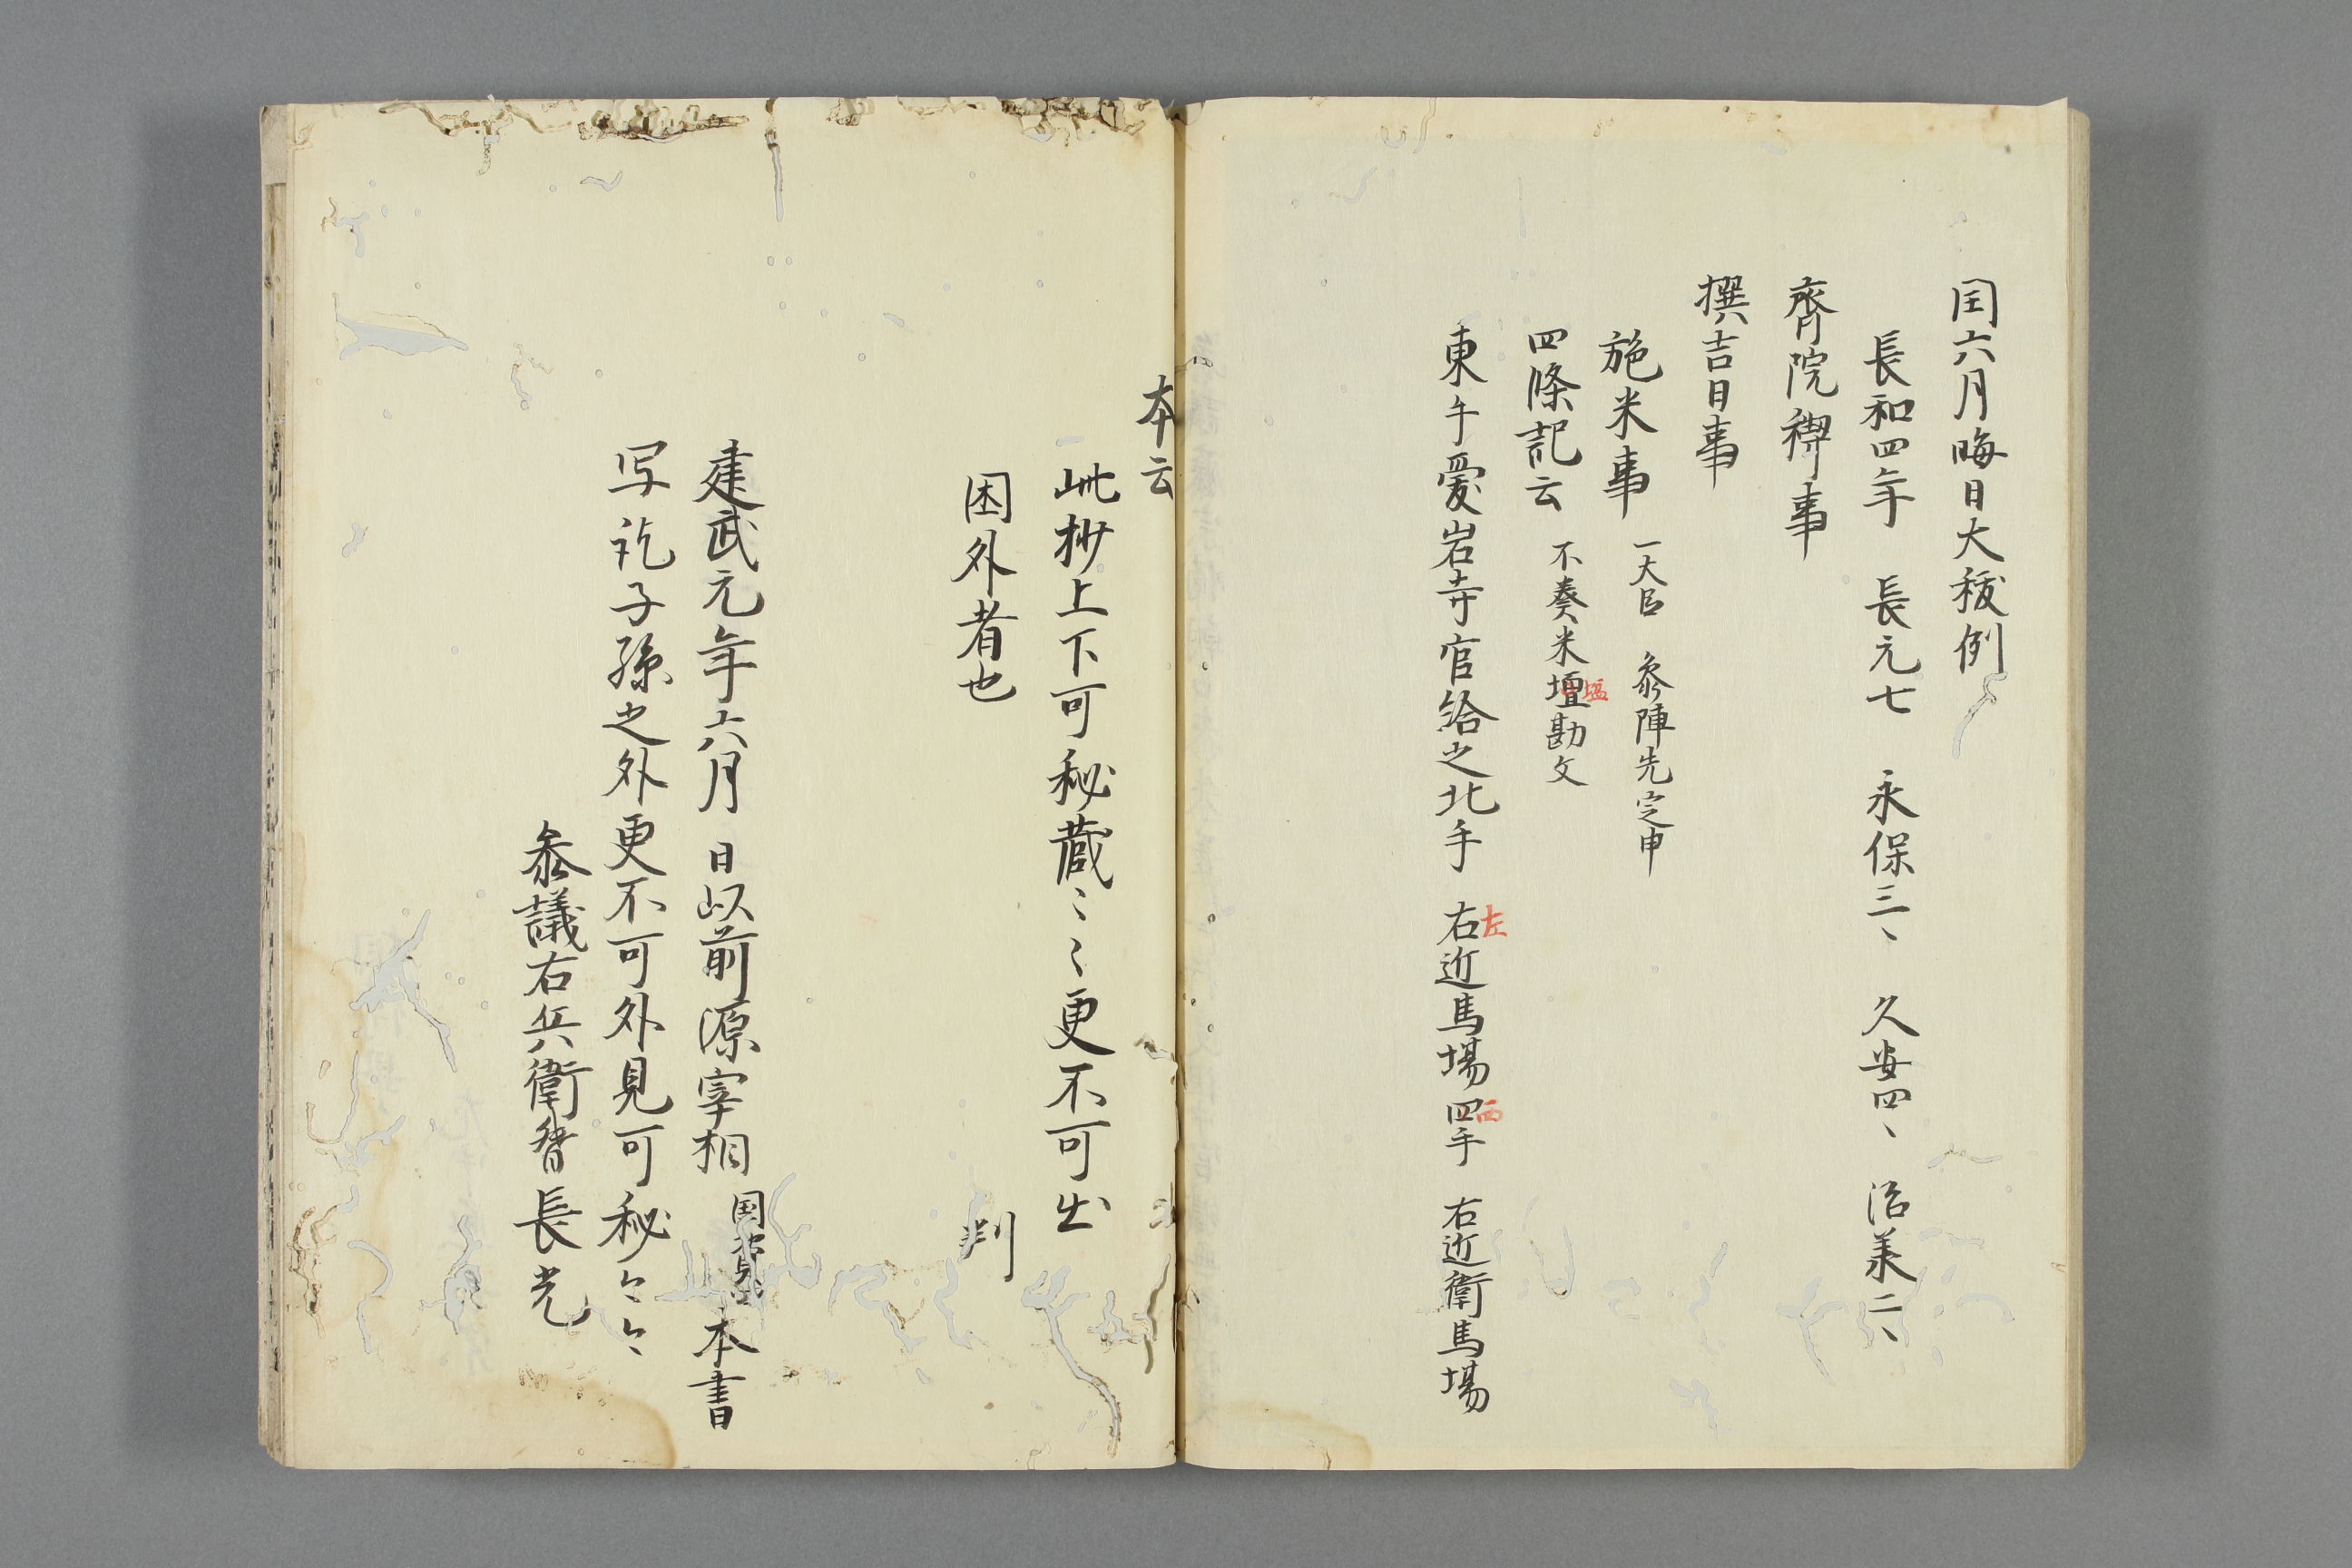 閏六月晦日大秡例
長和四年 長元七 永保三、 久安四、 治承二、
齊院禊事
撰吉日事
施米事 一大臣 參陣先定申
四條記云 不奏米壇勘文
塩
東午愛岩寺官給之北手 右近馬場四手 右近衛馬場
左
西
本云
此抄上下可秘蔵〻〻更不可出
困外者也 判
建武元年六月 日以前源宰相国資 本書
写訖子孫之外更不可外見可秘〻〻
參議右兵衛督長光